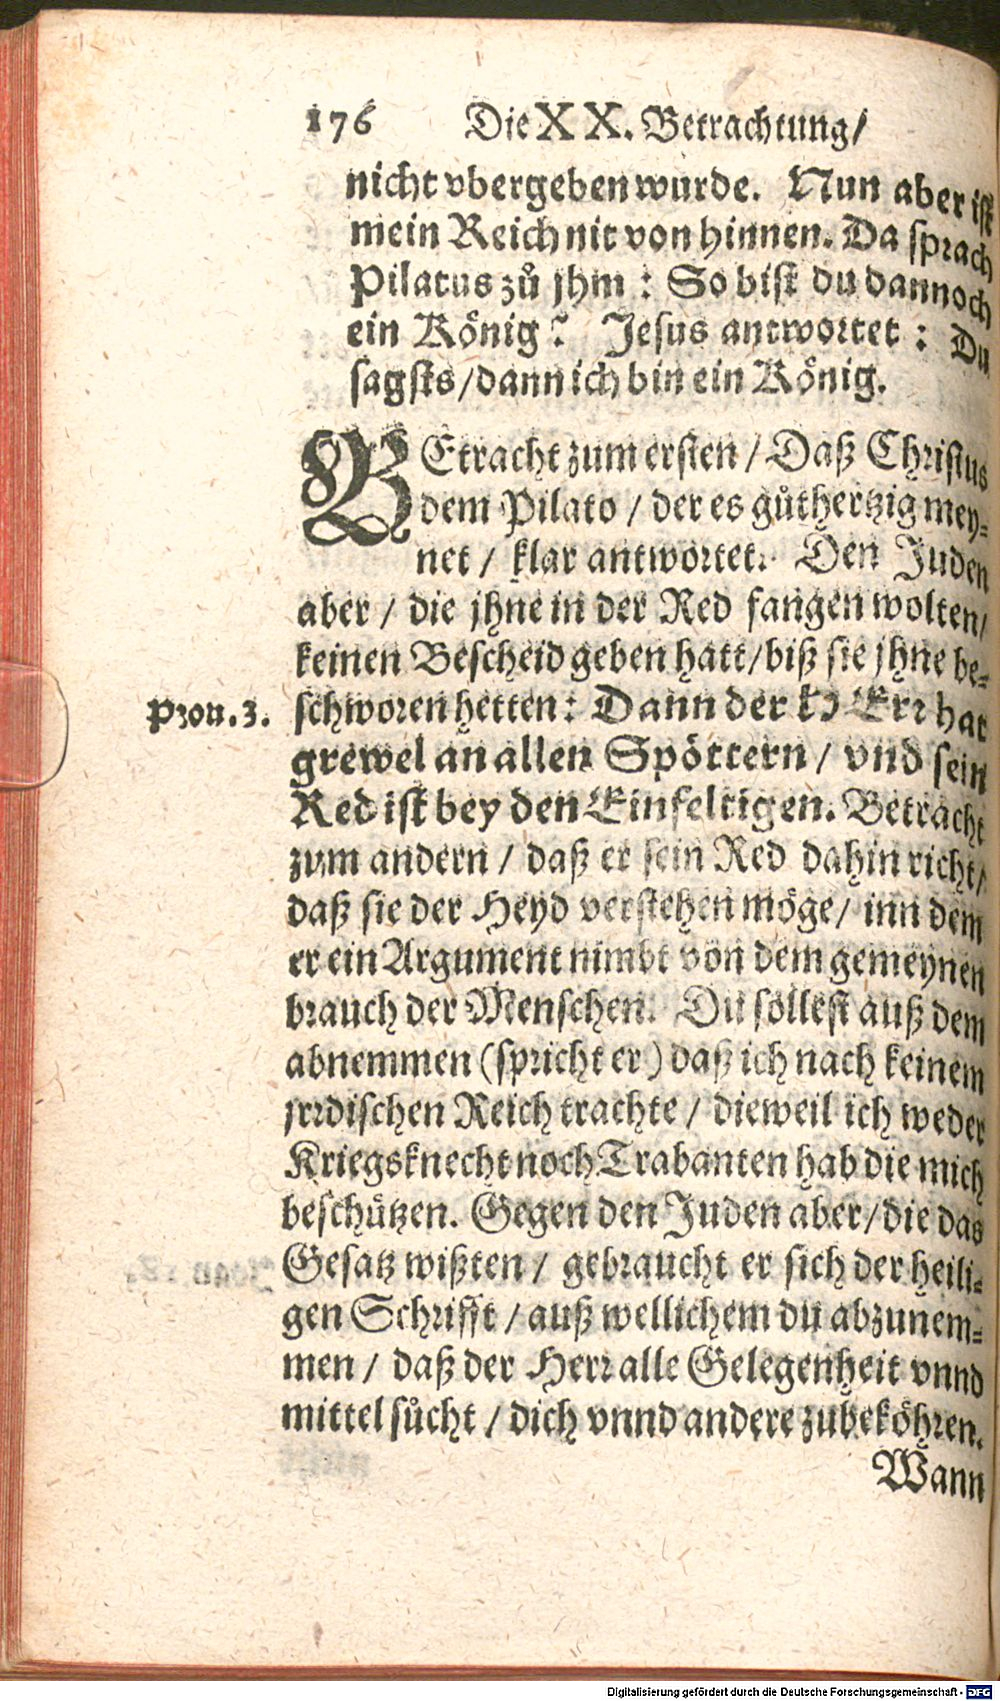 176 Die XX. Betrachtung/
nicht vbergeben wurde. Nun aber ist
mein Reich nit von hinnen. Da sprach
Pilatus zů jhm : So bist du dannoch
ein König? Jesus antwortet : Du
sagsts/dann ich bin ein König.
BEtracht zum ersten / Daß Christus
dem Pilato / der es gůthertzig mey-
net / klar antwortet. Den Juden
aber / die jhne in der Red fangen wolten/
keinen Bescheid geben hatt/biß sie jhne be-
Prou. 3. schworen hetten: Dann der HErr hat
grewel an allen Spöttern / vnd sein
Red ist bey den Einfeltigen. Betracht
zum andern / daß er sein Red dahin richt/
daß sie der Heyd verstehen möge/ inn dem
er ein Argument nimbt von dem gemeynen
brauch der Menschen. Du sollest auß dem
abnemmen (spricht er) daß ich nach keinem
jrrdischen Reich trachte / dieweil ich weder
Kriegsknecht noch Trabanten hab die mich
beschützen. Gegen den Juden aber/die das
Gesatz wißten / gebraucht er sich der heili-
gen Schrifft / auß wellichem du abzunem-
men / daß der Herr alle Gelegenheit vnnd
mittel sůcht / dich vnnd andere zubeköhren.
Wann
Digitalisierung gefördert durch die Deutsche Forschungsgemeinschaft - DFG